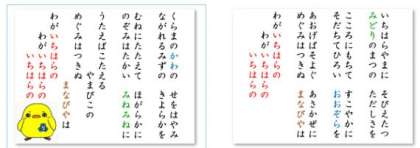 くらまのかわの　せをはやみ
ながれるみずの　きよらかを
むねにたたえて　ほがらかに
のぞみはたかい　みねみねに
うたえばこたえる
やまびこの
めぐみはつきぬ
まなびやは
わがいちはらの
わがいちはらの
いちはらの
いちはらやまに　そびえたつ
みどりのまつの　ただしさを
こころにもちて　すこやかに
そだちてひろい　おおぞらを
あおげばそよぐ　あさかぜに
めぐみはつきぬ　まなびやは
わがいちはらの
わがいちはらの
いちはらの